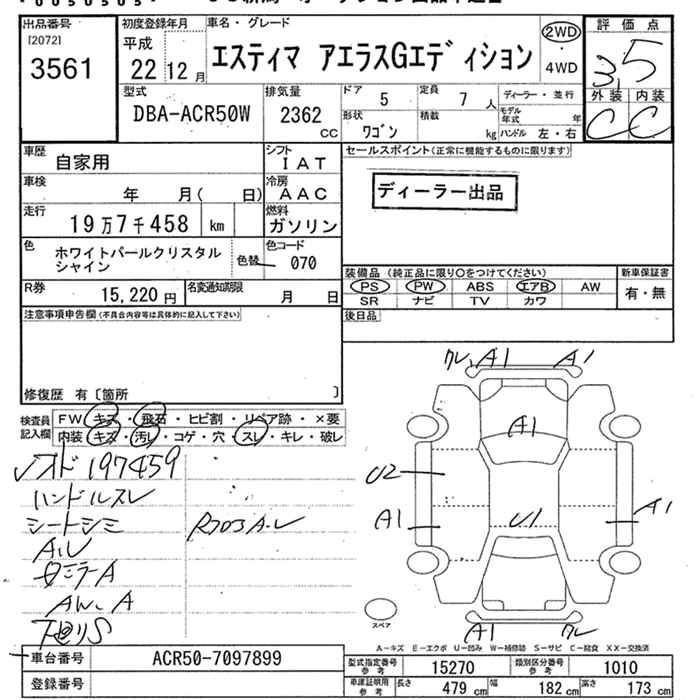 出品番号
[2072]
3561
初度登録年月
平成
22 12月
車名・グレード
エスティマ アエラスGエディション
2WD
・
4WD
評価点
3.5
外装 内装
C C
型式
DBA-ACR50W
排気量
2362
CC
ドア 5
定員 7 人
形状
ワゴン
積載
kg
ディーラー・並行
モデル
年式 年
ハンドル 左・右
車歴
自家用
シフト
IAT
車検
年 月( 日)
冷房
AAC
走行
19万7千458 km
燃料
ガソリン
色
ホワイトパールクリスタル
シャイン
色替
色コード
070
R券
15,220 円
名変通知期限
月 日
セールスポイント(正常に機能するものに限ります)
ディーラー出品
装備品(純正品に限り○をつけてください)
PS PW ABS エアB AW
SR ナビ TV カワ
新車保証書
有・無
後日品
注意事項申告欄(不具合内容等は具体的に記入して下さい)
修復歴 有〔箇所 〕
検査員
記入欄
FW キズ・飛石・ヒビ割・リペア跡・×要
内装 キズ・汚レ・コゲ・穴・スレ・キレ・破レ
オド 197459
ハンドルスレ
シートシミ
A.U
R703A.U
AW.A
下廻りS
クレ.A1 A1
A1
U2
A1
U1
A1
A1 クレ
スペア
A−キズ E−エクボ U−凹み W−補修跡 S−サビ C−腐食 XX−交換済
車台番号 ACR50-7097899
登録番号
型式指定番号
参考
15270
類別区分番号
参考
1010
車庫証明用
参考
長さ 479 cm 幅 182 cm 高さ 173 cm